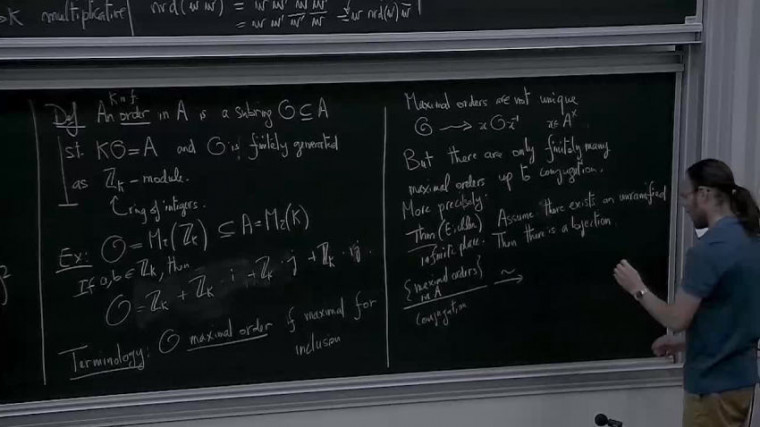 multiplicative
nrd(w w') = w w' w̄' w̄ = w nrd(w') w̄
= w w' w̄' w̄
K n.f.
Def An order in A is a subring O ⊆ A
st. KO = A and O is finitely generated
as ℤ_K-module.
ring of integers.
Ex: O = M₂(ℤ_K) ⊆ A = M₂(K)
If a,b ∈ ℤ_K, then
O = ℤ_K + ℤ_K · i + ℤ_K · j + ℤ_K · ij
Terminology: O maximal order if maximal for
inclusion
Maximal orders are not unique
O → x O x⁻¹ x ∈ A^×
But there are only finitely many
maximal orders up to conjugation.
More precisely:
Thm (Eichler) Assume there exists an unramified
infinite place. Then there is a bijection
{maximal orders in A} ∼→
conjugation